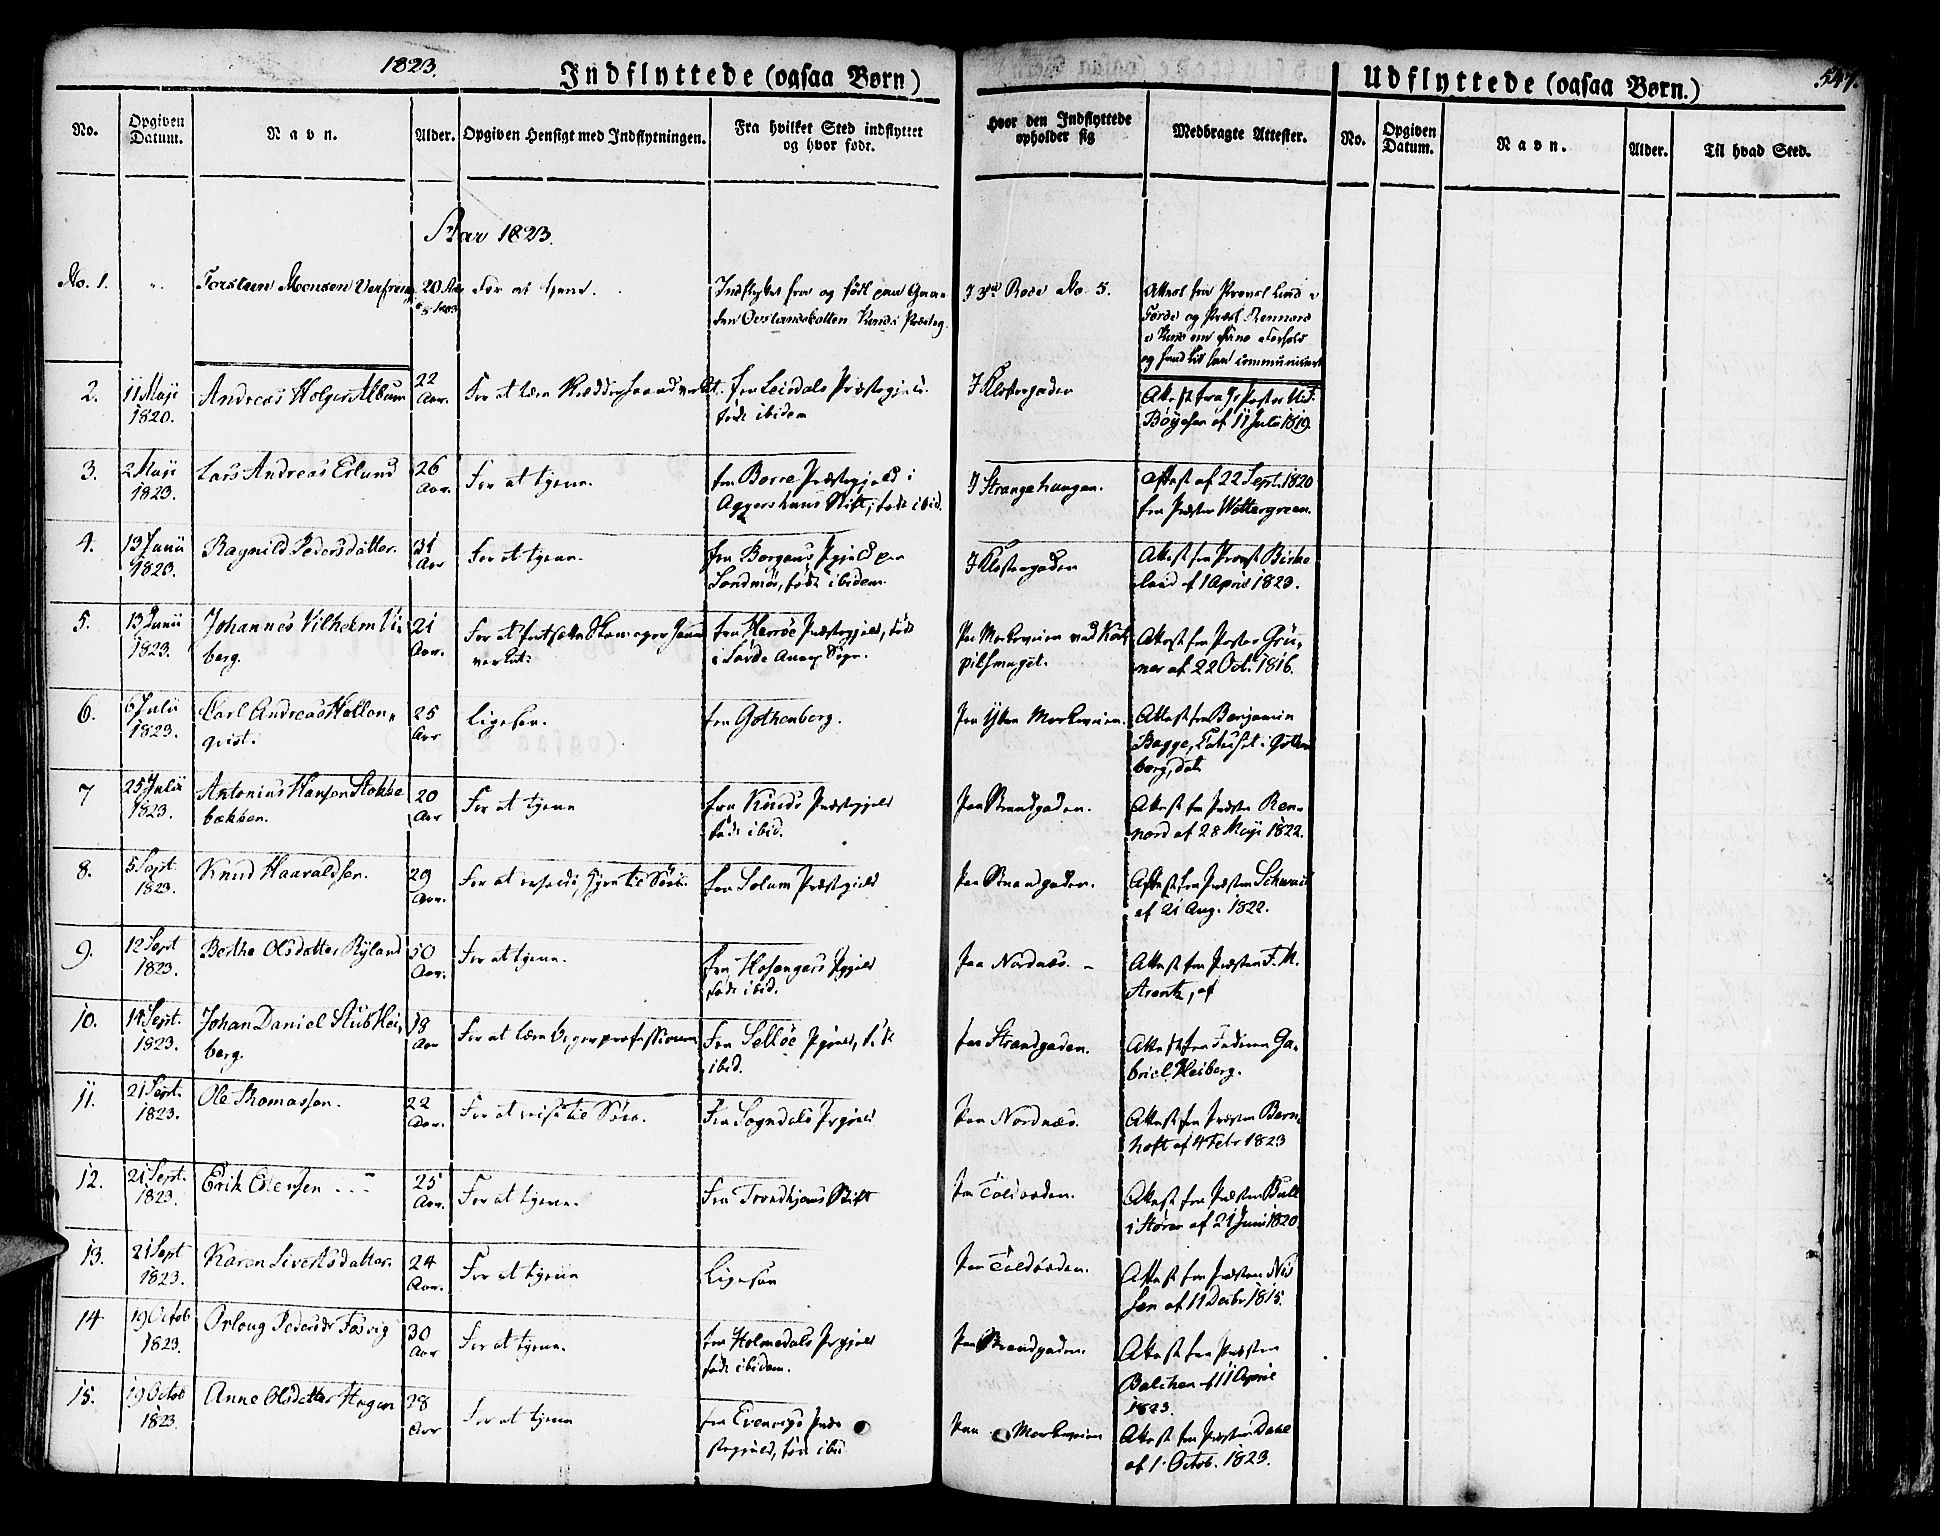 1823.
Indflyttede (ogsaa Børn)
Udflyttede (ogsaa Børn.)
547.
No.
Opgiven Datum.
Navn.
Alder.
Opgiven Hensigt med Indflytningen.
Fra hvilket Sted indflyttet og hvor født.
Hvor den Indflyttede opholder sig
Medbragte Attester.
No.
Opgiven Datum.
Navn.
Alder.
Til hvad Sted.
Aar 1823.
No. 1.
Torsteen Monsen
20 Aar
For at tjene.
Indflyttet fra og født paa Gaar-
den Kinds Præsteg.
I 3die Rode No. 5.
Attest fra Provst Lind i
Førde og Præst Rennord
og hand sit communicert
2.
11 Maji
1820.
Andreas Holger Album
22
Aar.
For at lære Skrædderhaandverket.
fra Leirdals Præstegjeld
født ibidem
I Klostergaden
Attest fra
Bøyesen af 11 Julii 1819.
3.
2 Maji
1823.
Lars Andreas Erlund
26
Aar.
For at tjene.
fra Borre Præstegjeld i
Aggershuus Stift, født ibid.
I Strangehaugen.
Attest af 22 Sept. 1820
fra Præsten Wettergreen.
4.
13 Junii
1823.
Ragnild Pedersdatter.
31
Aar
For at tjene.
fra Borgens Pgjeld paa
Søndmør, født ibidem.
I Klostergaden
Attest fra Provst Birke
land af 1 April 1823.
5.
13 Junii
1823.
Johannes Vilhelm Vi-
berg.
21
Aar.
For at fortsette Skomagerhaand
verket.
fra Herrøe Præstegjeld, født
i Førde Annex Sogn.
Paa Markeveien ved
Attest fra Pastor Grü-
ner af 22 Oct. 1816.
6.
6 Julii
1823.
Carl Andreas Hollon-
qvist.
25
Aar
Ligesaa.
fra Gothenborg.
Paa Øvre Markeveien.
Attest fra Benjamin
Bagge, i Gothen
borg, dat.
7
25 Julii
1823.
Antonius Hansen Stokke
bækken.
20
Aar
For at tjene
fra Kinds Præstegjeld
født ibid.
Paa Strandgaden.
Attest fra Præsten Ren-
nord af 28 Maji 1822.
8.
5 Sept.
1823.
Knud Haaraldsen.
29
Aar.
For at Hyre til Søes.
fra Solum Præstegjeld
Paa Strandgaden.
Attest fra Præsten
af 21 Aug. 1822.
9.
12 Sept
1823.
Berthe Olsdatter Ryland
50
Aar.
For at tjene.
fra Hosangers Pgjeld
født ibid.
Paa Nordnæs.
Attest fra Præsten F. M.
Arentz, af
10.
14 Sept.
1823.
Johan Daniel Stub Hei-
berg.
18
Aar
For at lære Bagerprofessionen
Fra Selløe Pgjeld, født
ibid.
Paa Strandgaden.
Attest fra Faderen Ga-
briel Heiberg.
11.
21 Sept.
1823.
Ole Thomassen.
22
Aar.
For at reise til Søes.
Fra Sogndals Prgjeld
Paa Nordnæs.
Attest fra Præsten Bern-
hoft af 4 Febr 1823
12.
21 Sept.
1823.
Erik Estensen
25
Aar.
For at tjene.
Fra Trondhjems Stift
Paa Toldboden.
Attest fra Præsten Bull
i Støren af 21 Juni 1820
13.
21 Sept
1823.
Karen Sivertsdatter.
24
Aar.
For at tjene
Ligesaa
Paa Toldboden.
Attest fra Præsten Nis
sen af 11 Decbr 1815.
14
19 Octob
1823.
Orloug Pedersdr Fosvig
30
Aar
For at tjene.
fra Holmedals Prgjeld
født ibidem.
Paa Strandgaden.
Attest fra Præsten
Balchen af 11 April
1823.
15.
19 Octob
1823.
Anne Olsdatter Hogen
28
Aar
For at tjene
fra Evenvigs Præ-
stegjeld, født ibid
Paa Markeveien
Attest fra Præsten Daae
af 1 Octob. 1823.